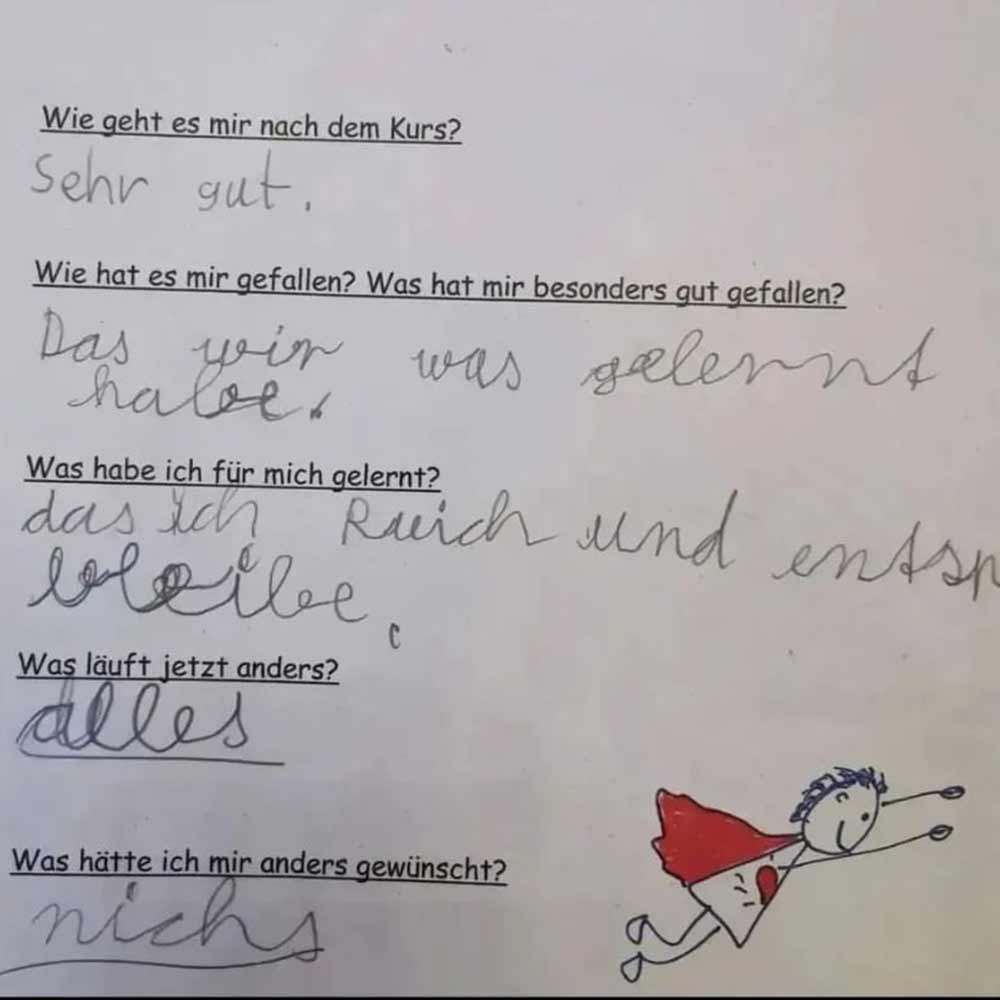 Wie geht es mir nach dem Kurs?
Sehr gut.
Wie hat es mir gefallen? Was hat mir besonders gut gefallen?
Das wir was gelernt
habe.
Was habe ich für mich gelernt?
das ich Ruich und entsp
bleibe.
Was läuft jetzt anders?
alles
Was hätte ich mir anders gewünscht?
nichs